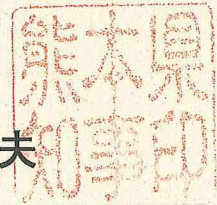 熊本県
知事印
夫